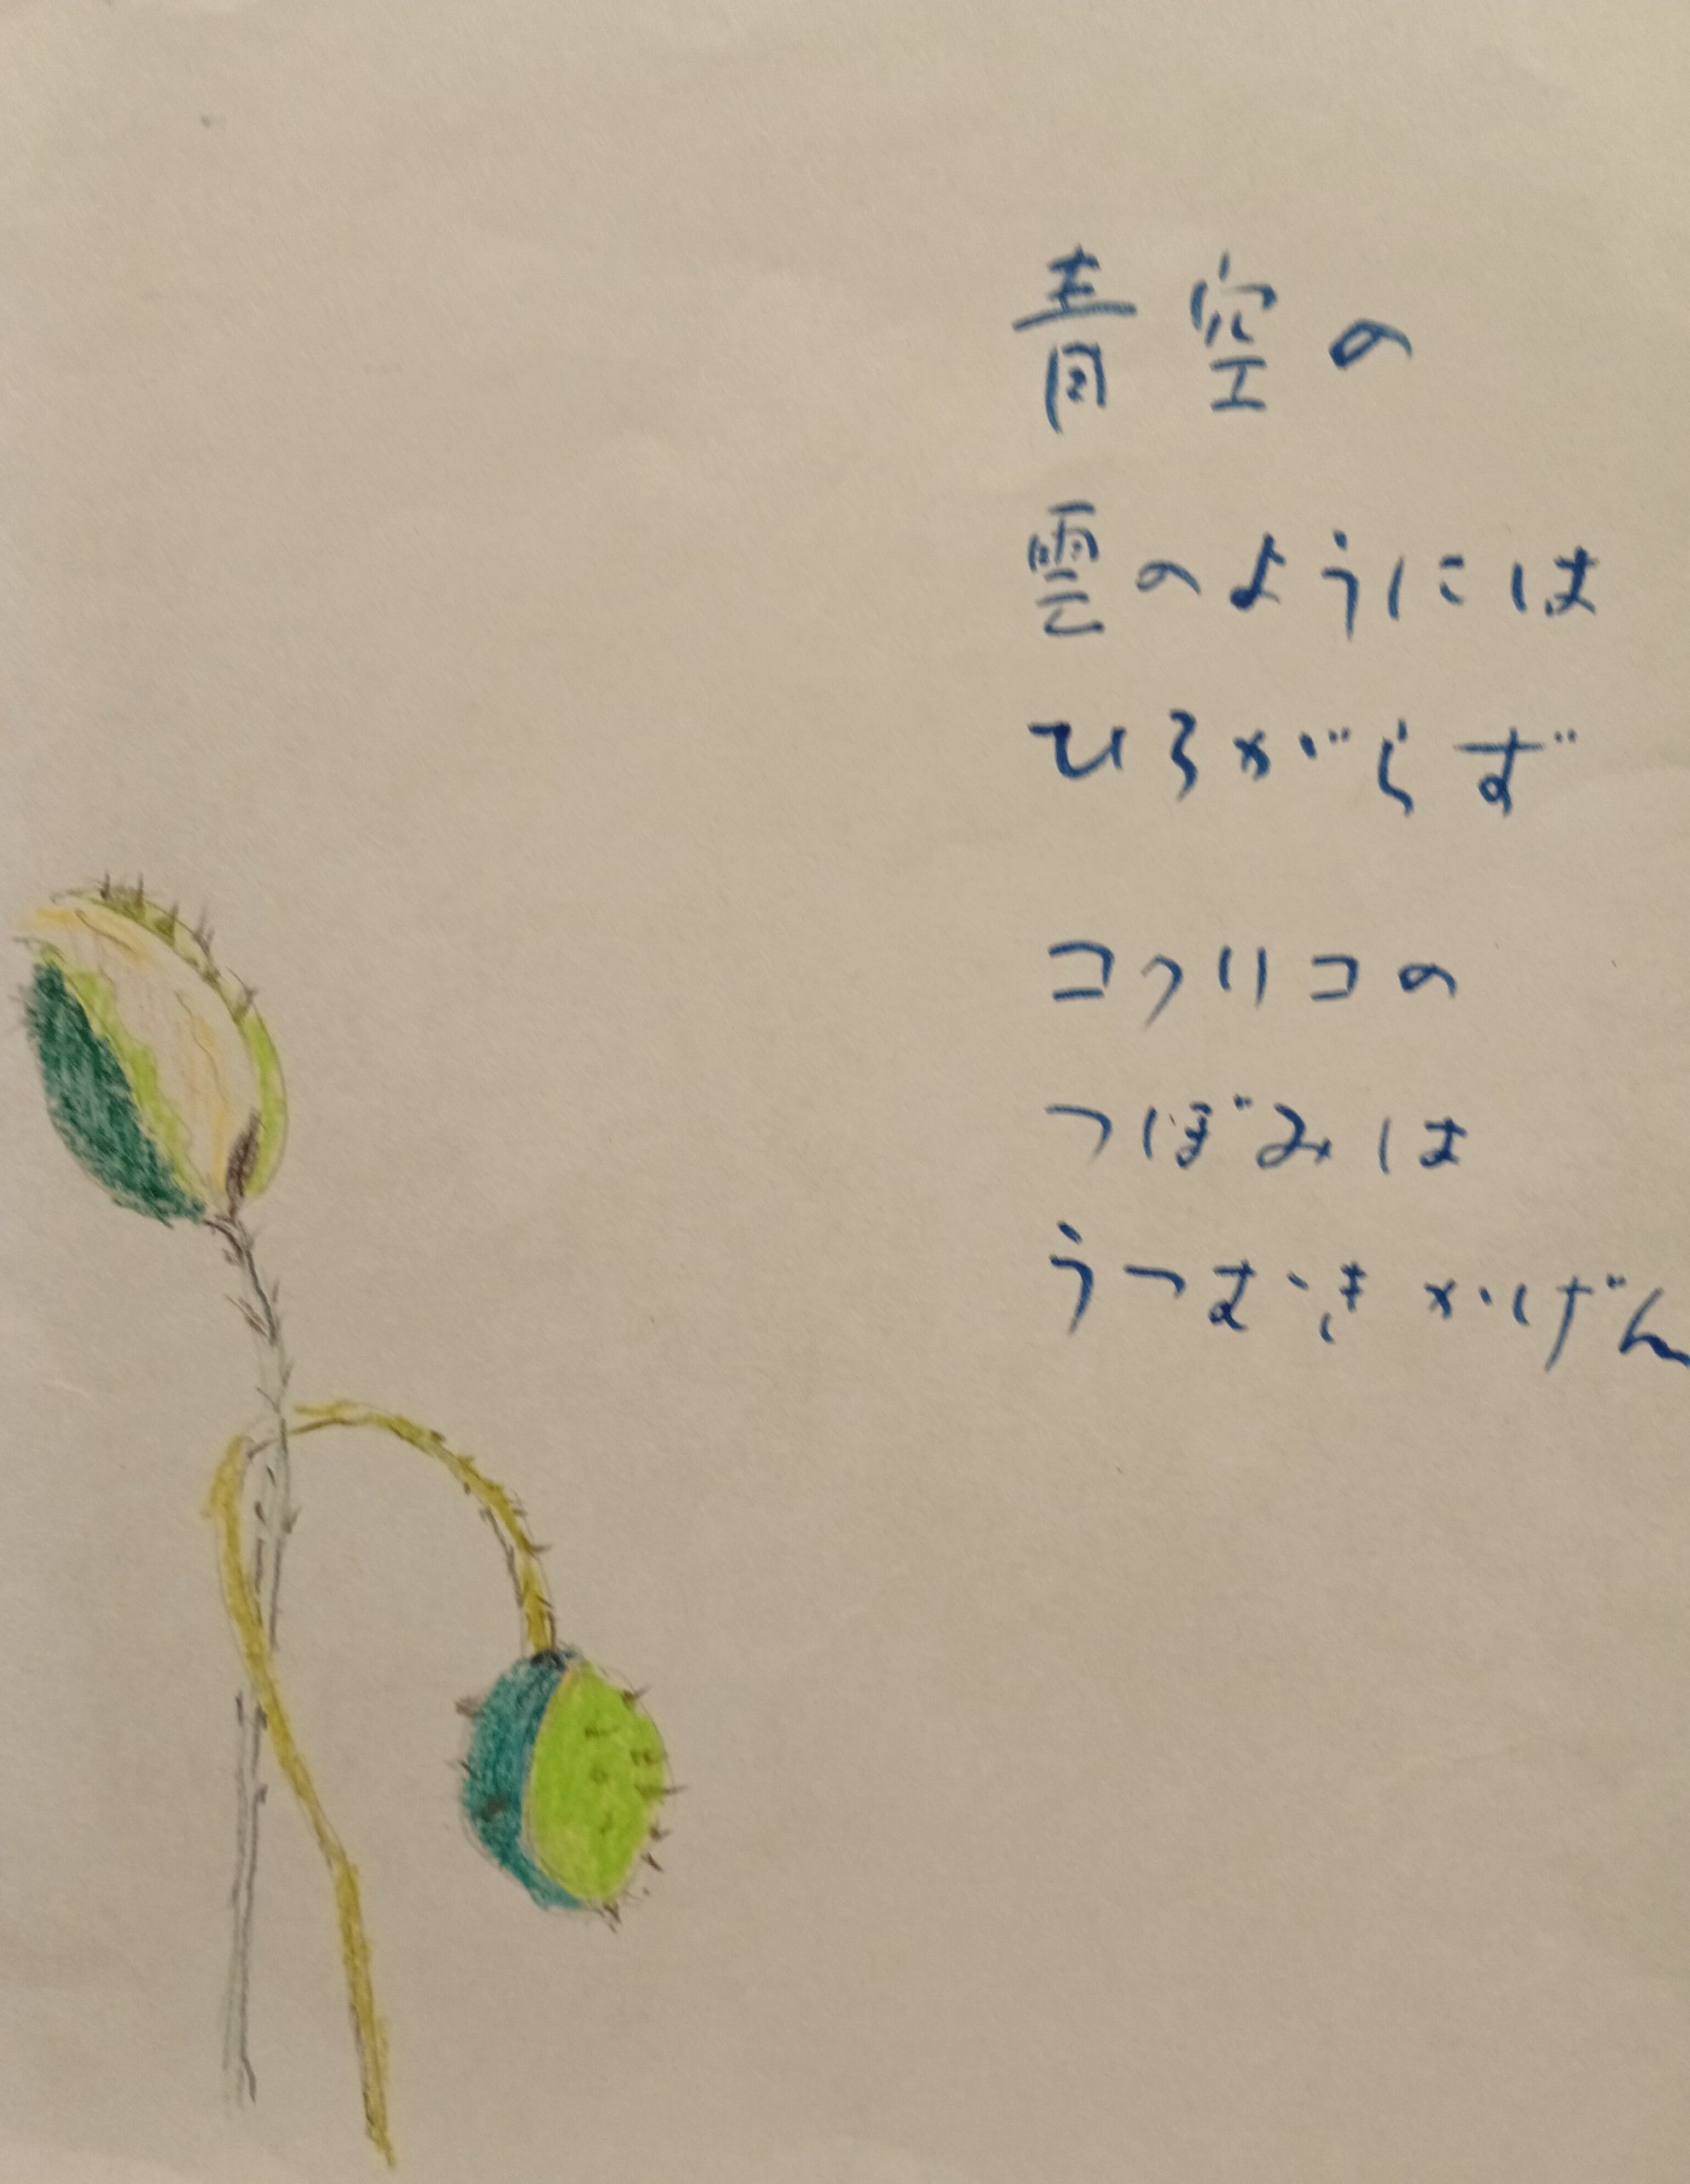 青空の
雲のようには
ひろがらず
コクリコの
つぼみは
うつむきかげん